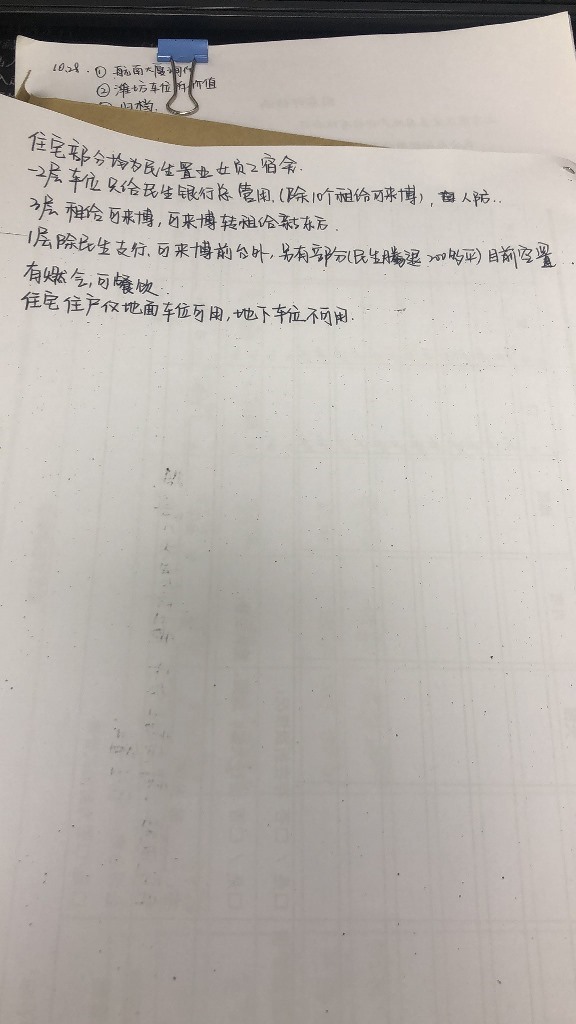 10.28. ① 大厦
② 潍坊车位 价值
归档.
住宅部分均为民生置业女员工宿舍.
-2层车位只给民生银行总管用.(除10个租给可来博), 人防..
3层租给可来博,可来博转租给新东方.
1层除民生支行.可来博前台外,另有部分(民生腾退200多平)目前空置.
有燃气,可餐饮.
住宅住户仅地面车位可用,地下车位不可用.